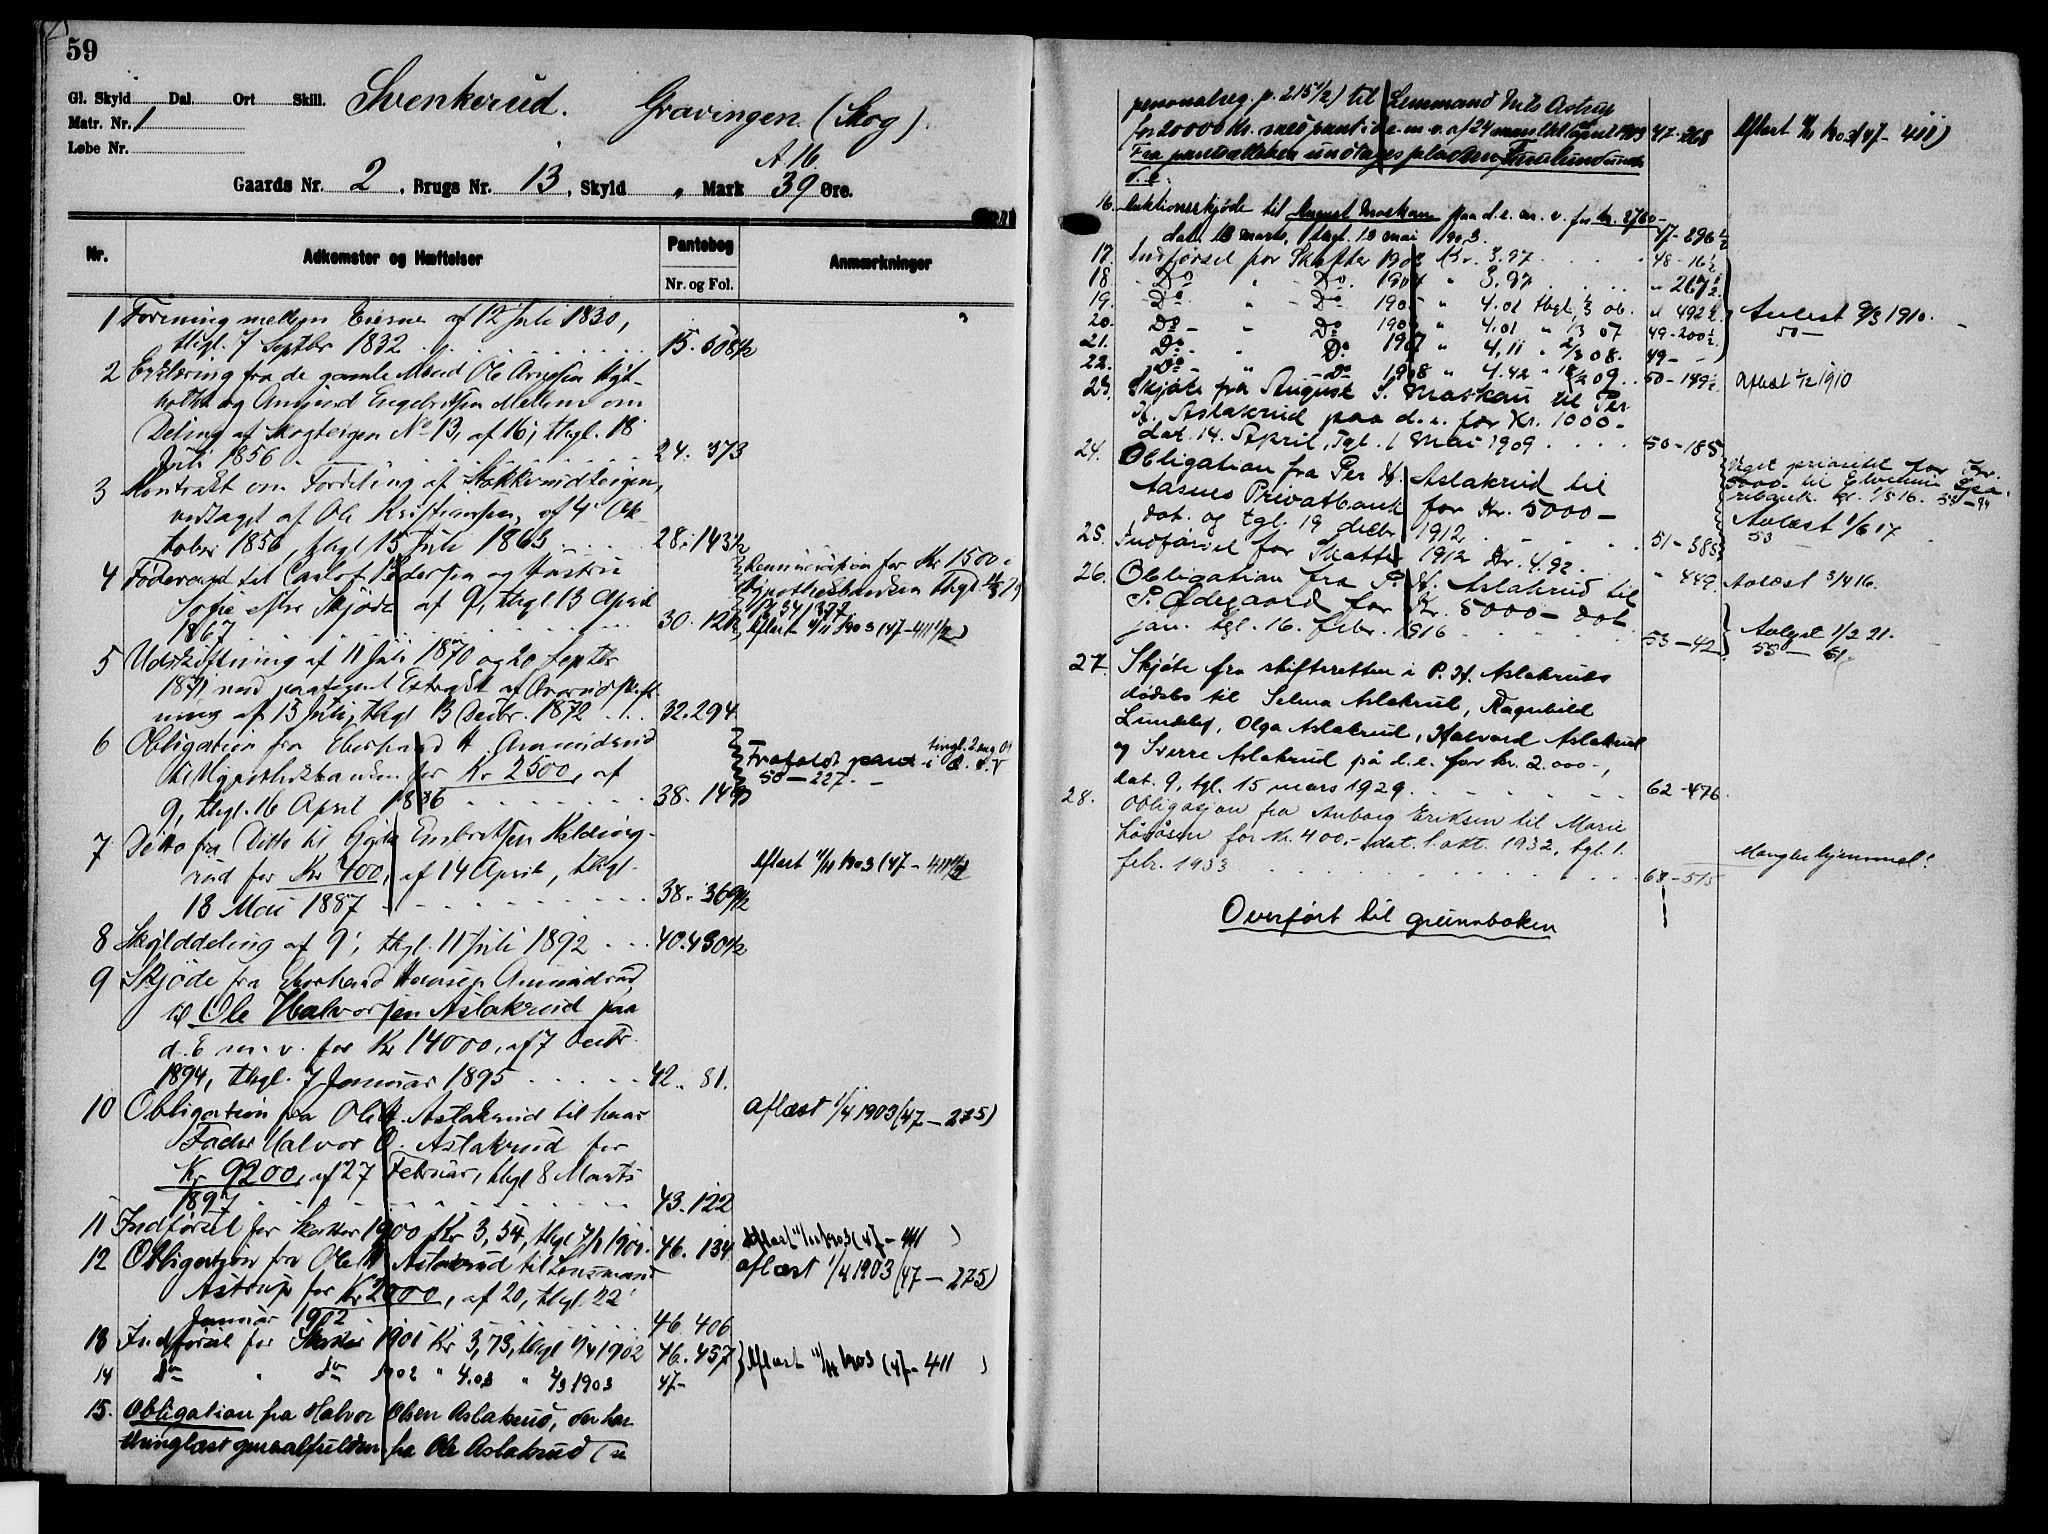 59
Gl. Skyld Dal. Ort Skill.
Svenkerud. Gravingen (Skog).
Matr. Nr. 1
Løbe Nr.
A. 16
Gaards Nr. 2, Brugs Nr. 13, Skyld " Mark 39 Øre.
Nr. Adkomster og Hæftelser Pantebog Anmærkninger
Nr. og Fol.
1 Forening mellem Eierne af 12 Juli 1830,
thgl. 7 Septbr 1832 15. 508½
2 Erklæring fra de gamle Mænd Ole
og Amund Engebretsen Mellem om
Deling af Skogteigen No 13, af 16, thgl. 18
Juli 1856 24. 373
3 Kontrakt om Fordeling af Stokkerudteigen,
vedtaget af Ole Kristiansen, af 4 Ok-
tober 1856, thgl 15 Juli 1863 28. 143½
4 Føderaad til Carlof Pedersen og Hustru
Sofie efter Skjøde af 9, thgl. 13 April
1867 30. 12½
Renunciation for Kr 1500 i
Hypothekbanken thgl.
34/377
Aflæst 11/11 1903 (47-411½)
5 Udskiftning af 11 Juli 1870 og 20 Septbr
1871 med paategnet Extrakt af
ning af 13 Juli, thgl 13 Decbr. 1872 32. 294
6 Obligation fra Eberhard H. Amundsrud
til Hypothekbanken for Kr 2500, af
9, thgl. 16 April 1886 38. 149
Frafaldt pant i d. e. v. tingl. 2 aug 09
50-227.
7 Ditto fra Ditto til Gyda Embretsen Kildeing-
rud for Kr 400, af 14 April, thgl.
13 Mai 1887 38. 369½
Aflæst 11/11 1903 (47-411½)
8 Skylddeling af 9, thgl. 11 Juli 1892 40. 430½
9 Skjøde fra Eberhard Hansen Amundsrud
til Ole Halvorsen Aslakrud paa
d. E m. v. for Kr 14000, af 7 Decbr.
1894, thgl. 7 Januar 1895 42. 81.
10 Obligation fra Ole H. Aslakrud til hans
Fader Halvor O. Aslakrud for
Kr 9200, af 27 Februar, thgl 8 Marts
1897 43. 122
Aflæst 1/4 1903 (47-275)
11 Indførsel for Skatter 1900 Kr 3,54, thgl 7/1 1901. 46. 134 Aflæst 11/11 1903 (47-411)
12 Obligation fra Ole H. Aslakrud til Lensmand
Astrup for Kr 2000, af 20, thgl. 22
Januar 1902 46. 406
aflæst 1/4 1903 (47-275)
13 Indførsel for Skatter 1901 Kr 3,73, thgl 1/4 1902 46. 457 Aflæst 11/11 1903 (47-411)
14 do " do 1902 " 4.03 " 4/3 1903 47-
15. Obligation fra Halvor Olsen Aslakrud, der har
thinglæst generalfuldm. fra Ole Aslakrud (se
personalreg. p. 215½) til Lensmand Nils Astrup
for 20000 Kr. med pant i d. e. m. v. af 24 mars thgl. 1 april 1903 47-268 Aflæst 11/11 1903 (47-411)
Fra pantsættelsen undtages pladsen Furulund under
d. e.
16. Auktionsskjøde til August Moskau paa d. e. m. v. for kr. 2760-
dat. 13 marts, thgl. 19 mai 1903. 47-296½
17. Indførsel for Skatter 1903 Kr. 3.97 48-16½
18 Do " Do. 1904 " 3.97 " 267½
19. Do " Do 1905 " 4.01 thgl. 1/3 06. " 492½
20. Do - Do 1906 " 4.01 " 1/3 07 49-200½
21. Do - " Do 1907 " 4,11 " 2/3 08. 49-
22. Do - " - Do 1908 " 4.42 " 18/2 09. 50-149½.
Avlæst 9/3 1910.
50-
23. Skjøte fra August S. Moskau til Per
H. Aslakrud paa d. e. for Kr. 1000-
dat. 14. April, tgl. 1 Mai 1909 50-185
Aflæst 1/12 1910
24. Obligation fra Per H. Aslakrud til
Aasnes Privatbank for Kr. 5000-
dat. og tgl. 19 decbr 1912. 51-385
Veget prioritet for Kr.
5000- til Elverum Spa-
rebank tgl. 1/5 16. 53-99
Avlæst 1/6 17
53-
25. Indførsel for Skatter 1912 Kr. 4.92. " 449. Avlæst 3/4 16.
26. Obligation fra P. H. Aslakrud til
P. Ødegaard for Kr. 5000- dat.
jan. tgl. 16. febr. 1916 53-42
Avlyst 1/2 21.
55-
27. Skjøte fra skifteretten i P. H. Aslakruds
dødsbo til Selma Aslakrud, Ragnhild
Lundeby, Olga Aslakrud, Halvard Aslakrud
og Sverre Aslakrud på d. e. for kr. 2.000-,
dat. 9, tgl. 15 mars 1929 62-476.
28. Obligasjon fra Anborg Eriksen til Marie
Løvåsen for kr. 400,- dat. 1. okt. 1932, tgl. 1.
febr. 1933 63-515
Mangler hjemmel!
Overført til grunnboken